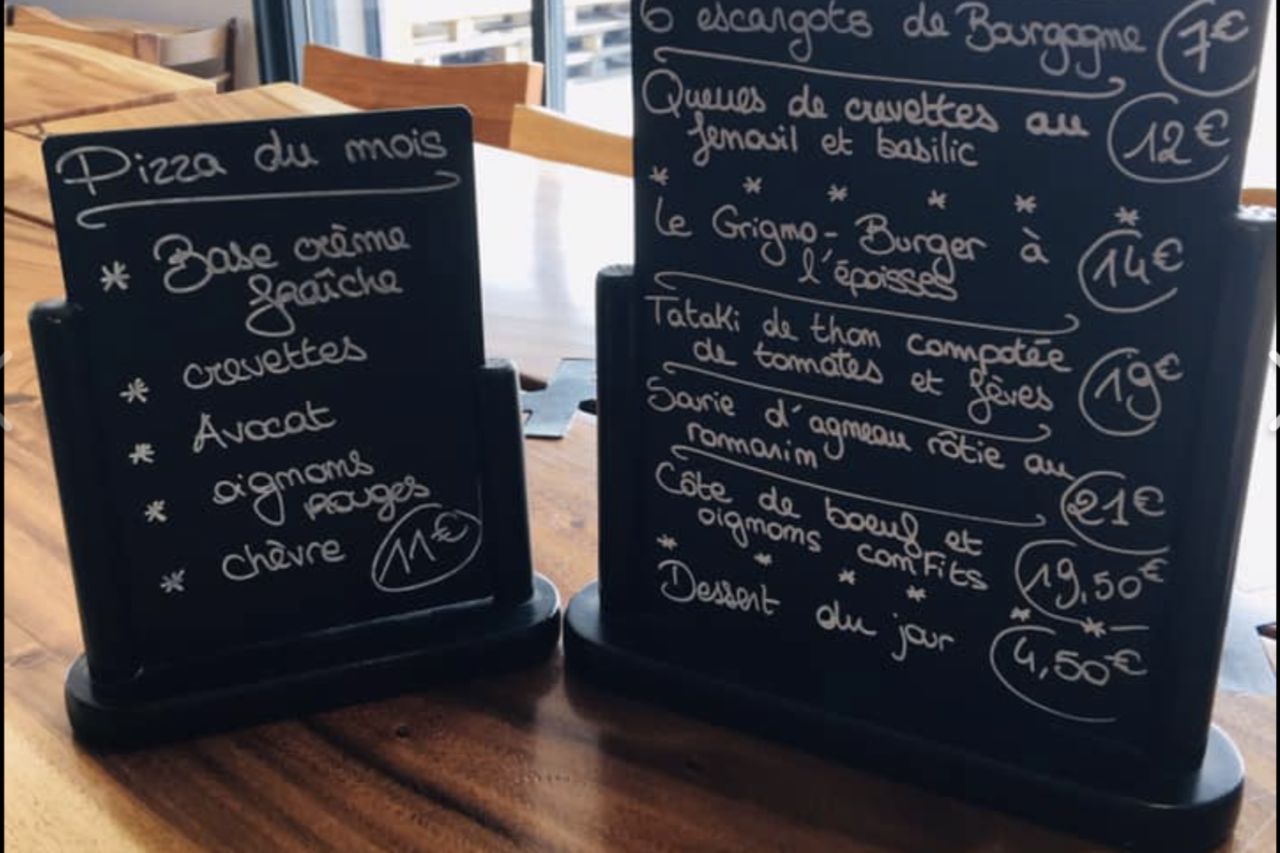 Pizza du mois
* Base crème
fraîche
* crevettes
* Avocat
* oignons
rouges
* chèvre 11€
6 escargots de Bourgogne 7€
Queues de crevettes au 12€
fenouil et basilic
* * * * * *
Le Grigno-Burger à 14€
l'époisses
Tataki de thon compotée
de tomates et fèves 19€
Sourie d'agneau rôtie au
romarin 21€
Côte de boeuf et
oignons confits 19,50€
* * * * * *
Dessert du jour 4,50€